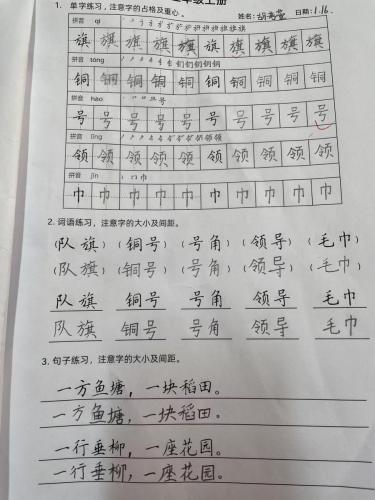 二年级上册
1. 单字练习，注意字的占格及重心。 姓名: 胡 萱 日期: 1.16.
拼音 qí
旗 旗 旗 旗 旗 旗 旗 旗 旗 旗
拼音 tóng
铜 铜 铜 铜 铜 铜 铜 铜 铜 铜
拼音 hào
号 号 号 号 号 号 号 号 号 号
拼音 lǐng
领 领 领 领 领 领 领 领 领 领
拼音 jīn
巾 巾 巾 巾 巾 巾 巾 巾 巾 巾
2. 词语练习，注意字的大小及间距。
(队旗) (铜号) (号角) (领导) (毛巾)
(队旗) (铜号) (号角) (领导) (毛巾)
队旗 铜号 号角 领导 毛巾
队旗 铜号 号角 领导 毛巾
3. 句子练习，注意字的大小及间距。
一方鱼塘，一块稻田。
一方鱼塘，一块稻田。
一行垂柳，一座花园。
一行垂柳，一座花园。